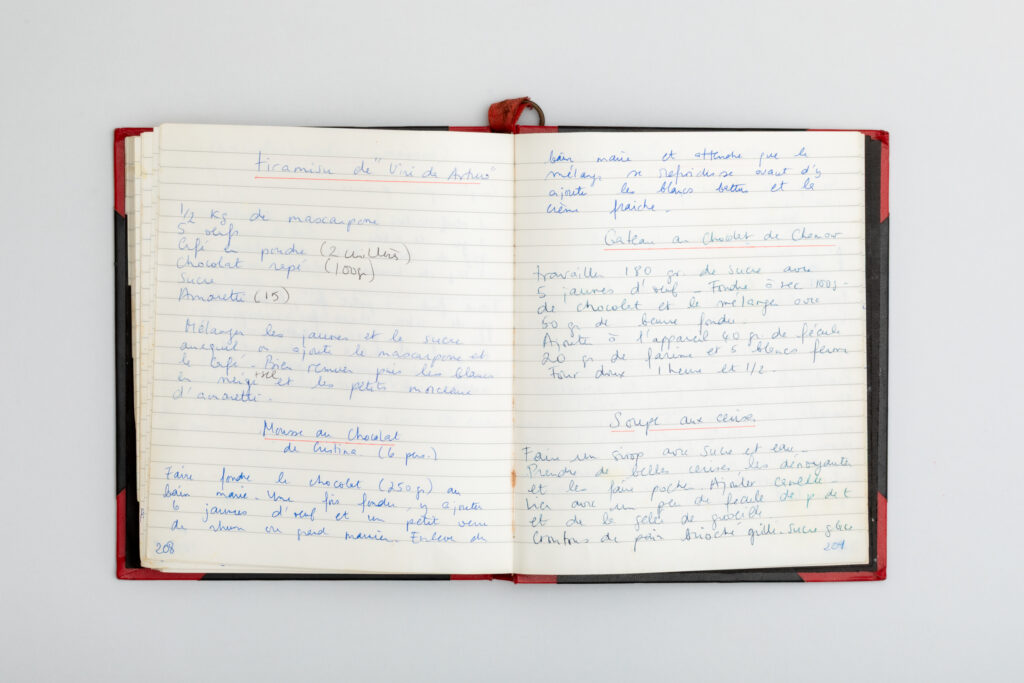 tiramisu de "Vini da Arturo"
1/2 Kg de mascarpone
5 oeufs
Café en poudre (2 cuillères)
Chocolat rapé (100gr)
Sucre
Amaretti (15)
Mélanger les jaunes et le sucre
auquel on ajoute le mascarpone et
le café. Bien remuer puis les blancs
en neige +sel et les petits morceaux
d'amaretti.
Mousse au Chocolat
de Cristina (6 pers.)
Faire fondre le chocolat (250 gr) au
bain marie. Une fois fondu, y ajouter
6 jaunes d'oeuf et un petit verre
de rhum ou grand marnier. Enlever du
208
bain marie et attendre que le
mélange se refroidisse avant d'y
ajouter les blancs battus et la
crème fraiche.
Gateau au Chocolat de
travailler 180 gr de sucre avec
5 jaunes d'oeuf - Fondre à sec 100gr
de chocolat et le mélanger avec
50 gr de beurre fondu.
Ajouter à l'appareil 40 gr de fécule
20 gr de farine et 5 blancs fermes
Four doux 1 heure et 1/2.
Soupe aux cerises
Faire un sirop avec sucre et eau.
Prendre de belles cerises, les dénoyauter
et les faire pocher. Ajouter cannelle.
Lier avec un peu de fécule de p de t
et de la gelée de groseille.
Croutons de pain brioché grillé. Sucre glace
209